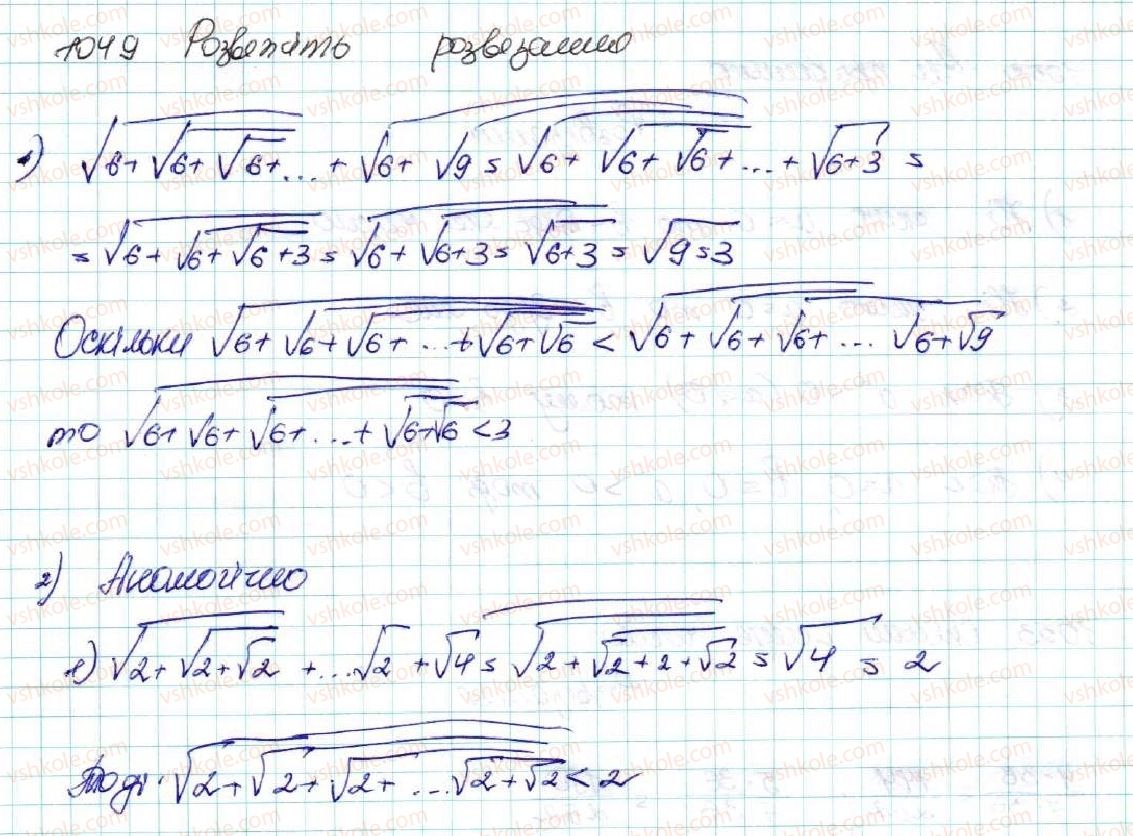 1049 Розвежіть розвезанно
1) √6+√6+√6+... + √6+ √9 = √6+ √6+√6+...+√6+3 =
= √6+√6+√6+3 = √6+√6+3 = √6+3 = √9=3
Оскільки √6+√6+√6+...+√6+√6 < √6+√6+√6+... √6+√9
то √6+√6+√6+...+√6+√6 <3
2) Аналогічно
1) √2+√2+√2 +...√2 +√4= √2+√2+2+√2 = √4 = 2
Тоді √2+√2+√2+ ...√2+√2 < 2
vshkole.com